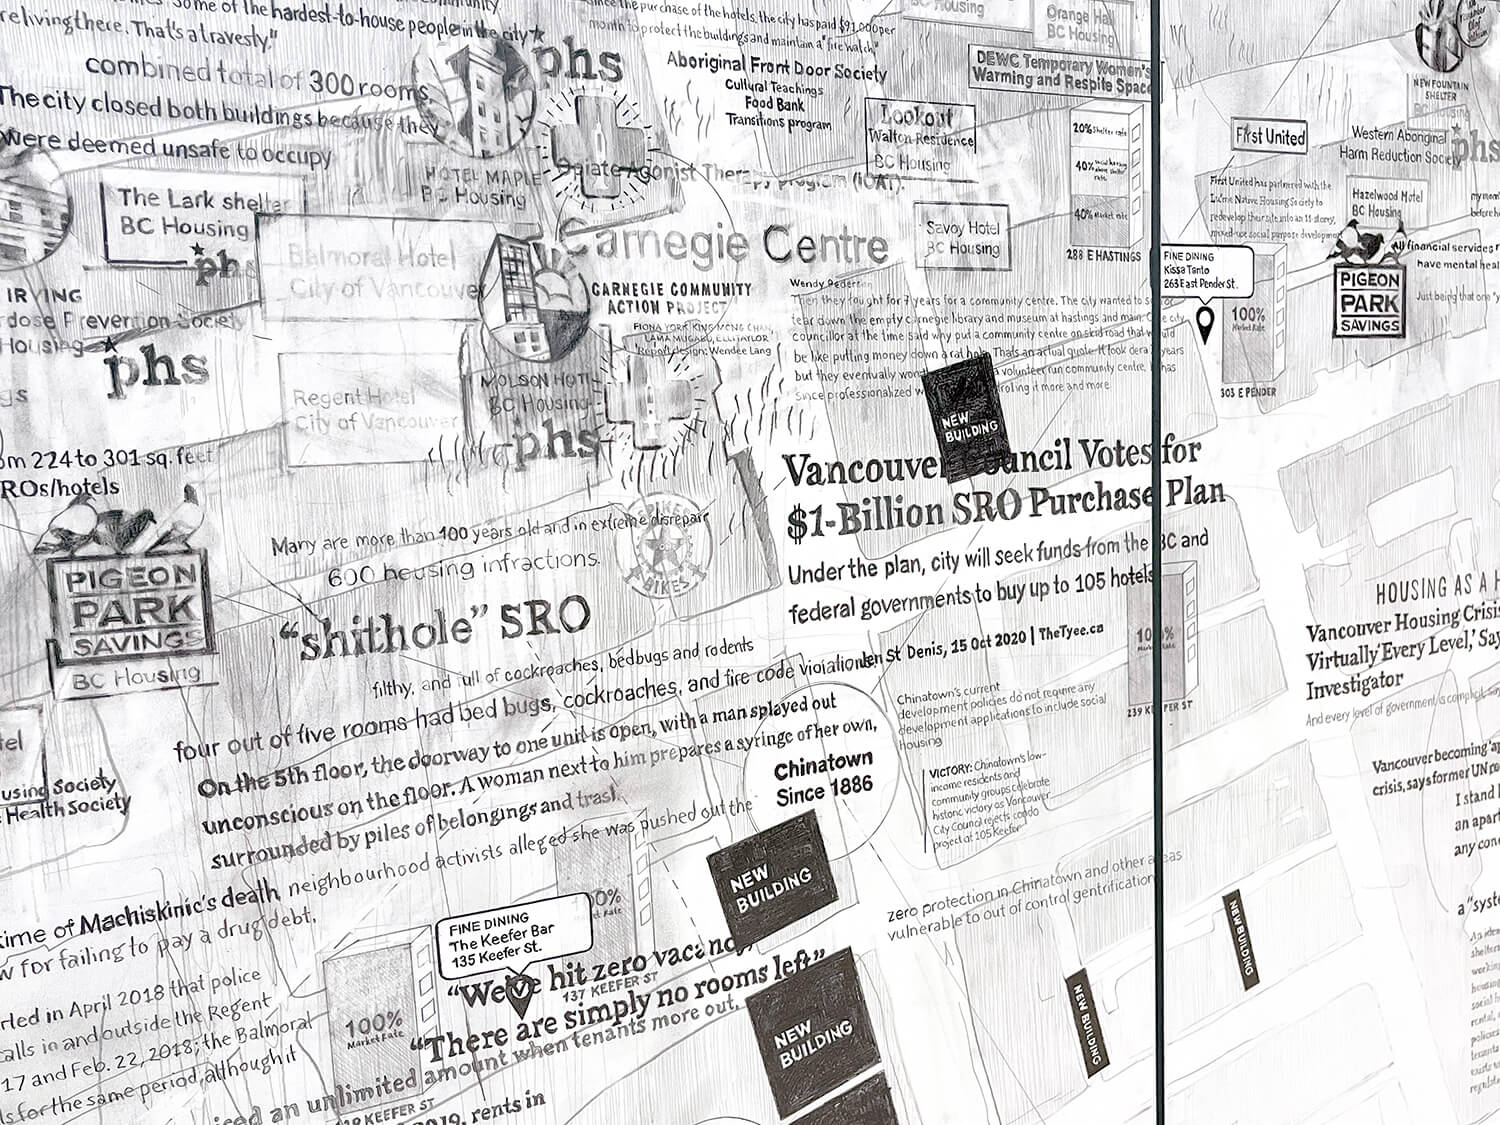 Some of the hardest-to-house people in the city
reliving there. That's a travesty."
combined total of 300 rooms.
The city closed both buildings because they
were deemed unsafe to occupy
phs
since the purchase of the hotels, the city has paid $91,000 per
month to protect the buildings and maintain a "fire watch"
Aboriginal Front Door Society
Cultural Teachings
Food Bank
Transitions program
BC Housing
Orange Hall
BC Housing
DEWC Temporary Women's
Warming and Respite Space
Lookout
Walton Residence
BC Housing
20% Shelter rate
40%
40% Market rate
288 E HASTINGS
First United
NEW FOUNTAIN
SHELTER
BC Housing
Western Aboriginal
Harm Reduction Society
phs
First United has partnered with the
Lu'ma Native Housing Society to
redevelop their site into an 11-story,
mixed-use social purpose development
Hazelwood Hotel
BC Housing
All financial services
have mental heal
Just being that one
PIGEON
PARK
SAVINGS
The Lark shelter
BC Housing
phs
HOTEL MAPLE
BC Housing
Opiate Agonist Therapy program (iOAT).
Carnegie Centre
Savoy Hotel
BC Housing
Balmoral Hotel
City of Vancouver
CARNEGIE COMMUNITY
ACTION PROJECT
FIONA YORK, KING-MONG CHAN,
LAMA MUGABO, ELLI TAYLOR
Report design: Wendee Lang
Wendy Pedersen
Then they fought for 7 years for a community centre. The city wanted to
tear down the empty carnegie library and museum at hastings and main.
councillor at the time said why put a community centre on skid road that
be like putting money down a rat hole. Thats an actual quote. It took
but they eventually won
a volunteer run community centre.
since professionalized
it more and more
FINE DINING
Kissa Tanto
263 East Pender St.
100%
Market Rate
303 E PENDER
IRVING
dose Prevention Society
Housing
phs
Regent Hotel
City of Vancouver
MOLSON HOTEL
BC Housing
phs
NEW
BUILDING
om 224 to 301 sq. feet
ROs/hotels
Vancouver Council Votes for
$1-Billion SRO Purchase Plan
Under the plan, city will seek funds from the BC and
federal governments to buy up to 105 hotels
Jen St Denis, 15 Oct 2020 | TheTyee.ca
PIGEON
PARK
SAVINGS
BC Housing
Many are more than 100 years old and in extreme disrepair
600 housing infractions.
SPIKES
BIKES
"shithole" SRO
filthy, and full of cockroaches, bedbugs and rodents
four out of five rooms had bed bugs, cockroaches, and fire code violations
On the 5th floor, the doorway to one unit is open, with a man splayed out
unconscious on the floor. A woman next to him prepares a syringe of her own,
surrounded by piles of belongings and trash.
using Society
Health Society
Chinatown
Since 1886
Chinatown's current
development policies do not require any
development applications to include social
housing
VICTORY: Chinatown's low-
income residents and
community groups celebrate
historic victory as Vancouver
City Council rejects condo
project at 105 Keefer
Market Rate
239 KEEFER ST
HOUSING AS A H
Vancouver Housing Crisis
Virtually Every Level,' Say
Investigator
And every level of government is complicit
Vancouver becoming
crisis, says former UN
I stand
an apart
any con
a "syste
time of Machiskinic's death, neighbourhood activists alleged she was pushed out the
w for failing to pay a drug debt.
rted in April 2018 that police
calls in and outside the Regent
17 and Feb. 22, 2018; the Balmoral
ls for the same period, although it
NEW
BUILDING
zero protection in Chinatown and other areas
vulnerable to out of control gentrification
NEW BUILDING
NEW BUILDING
FINE DINING
The Keefer Bar
135 Keefer St.
100%
Market Rate
"We've hit zero vacancy,
137 KEEFER ST
"There are simply no rooms left"
an unlimited amount when tenants more out.
KEEFER ST
2019, rents in
NEW
BUILDING